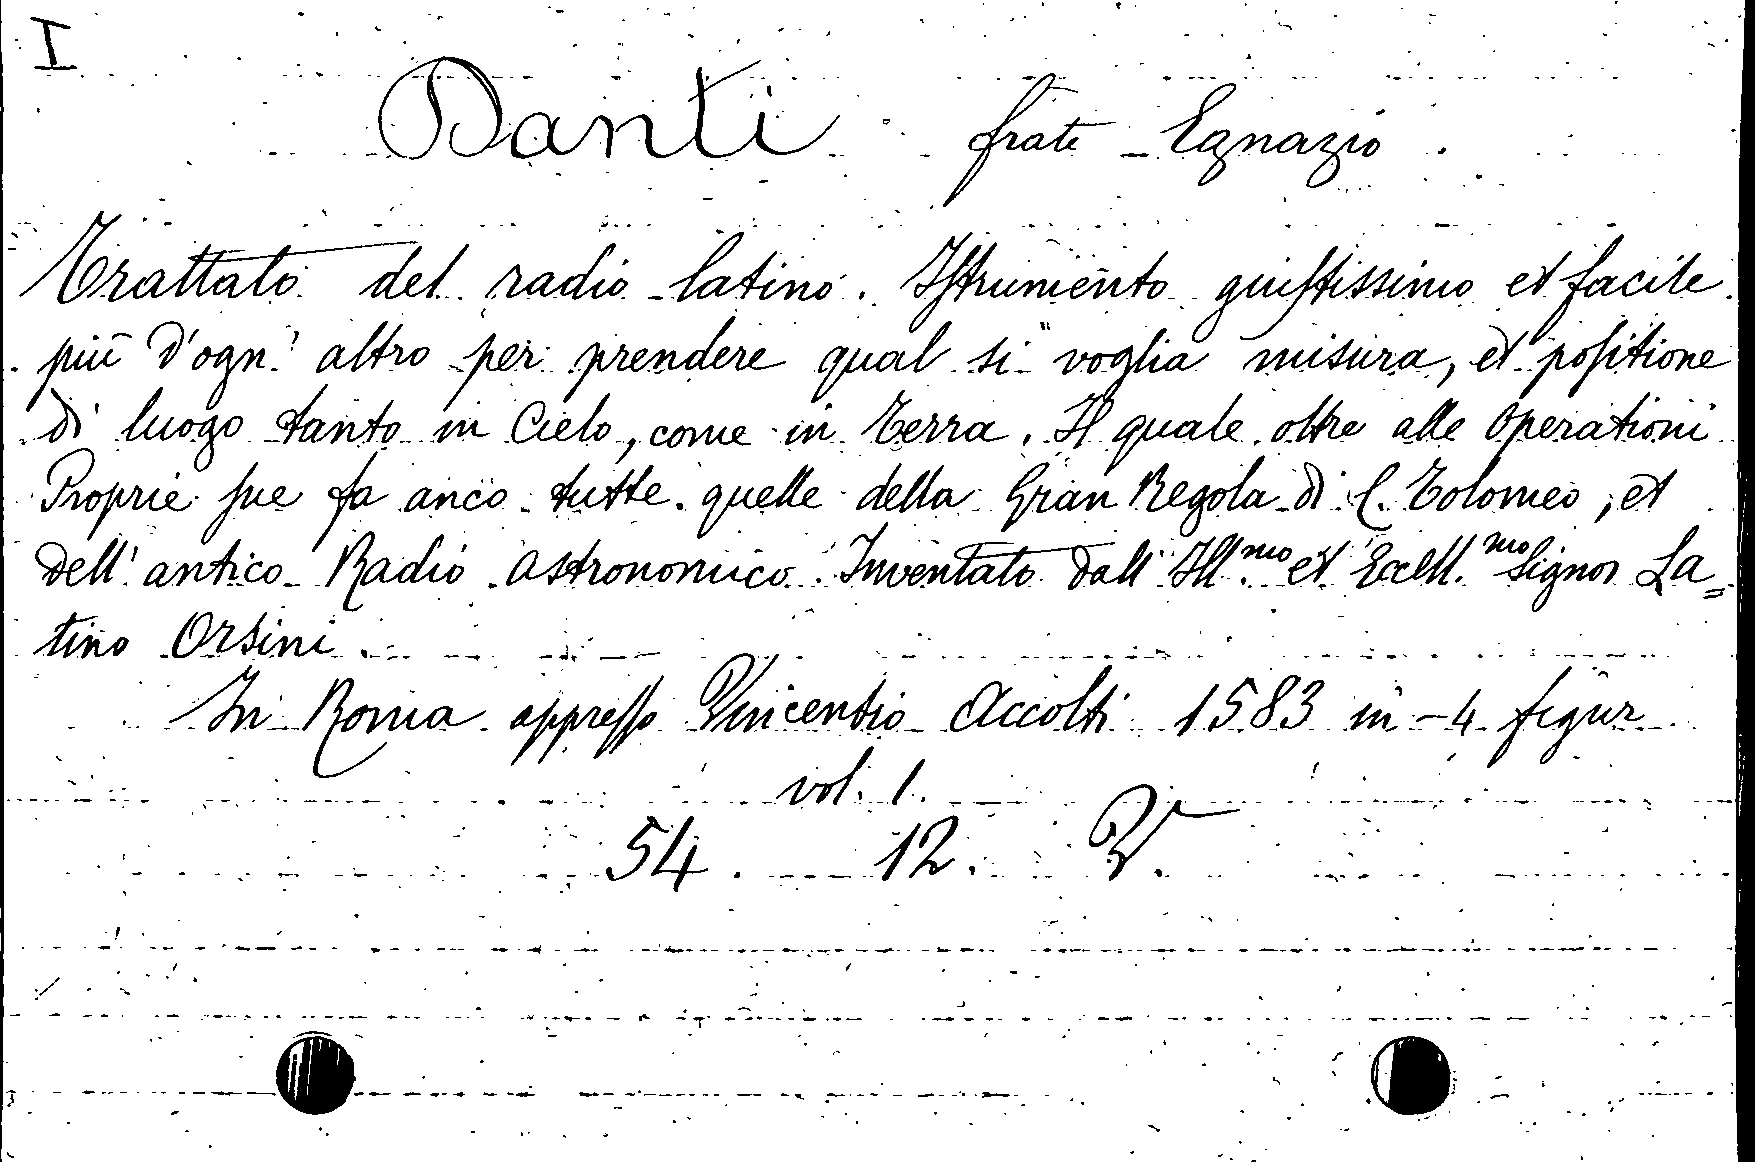 I
Danti frate Egnazio.
Trattato del radio latino. Iſtrumento giuſtissimo et facile
più d'ogn' altro per prendere qual si voglia misura, et poſitione
di luogo tanto in Cielo, come in Terra. Il quale oltre alle operationi
Proprie ſue fa anco tutte quelle della Gran Regola di C. Tolomeo, et
dell' antico Radio astronomico. Inventato dall' Ill.mo et Eccell.mo Signor La=
tino Orsini.
In Roma appreſſo Vincentio Accolti 1583 in-4 figur
vol. 1.
54. 12. V.